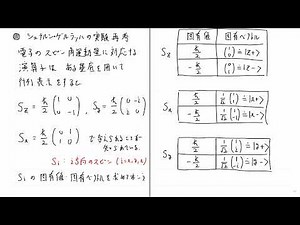 ◎ シュテルン・ゲルラッハの実験 再考
電子のスピン角運動量に対応する
演算子は ある基底を用いて
行列表示をすると
S_z = ħ/2 (1 0 / 0 -1) S_y = ħ/2 (0 -i / i 0)
S_x = ħ/2 (0 1 / 1 0) で与えられることが
知られている
S_i : i方向のスピン (i=x,y,z)
S_i の固有値・固有ベクトルを求めてみよう
固有値 固有ベクトル
S_z ħ/2 (1 / 0) ≐ |z+>
-ħ/2 (0 / 1) ≐ |z->
固有値 固有ベクトル
S_x ħ/2 1/√2 (1 / 1) ≐ |x+>
-ħ/2 1/√2 (1 / -1) ≐ |x->
固有値 固有ベクトル
S_y ħ/2 1/√2 (1 / i) ≐ |y+>
-ħ/2 1/√2 (1 / -i) ≐ |y->